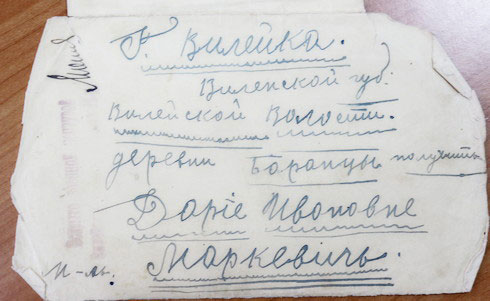 Г. Вилейка.
Виленской губ.
Вилейской Волости.
деревни Баранцы получить
Дарiе Ивановне
Маркевичь.